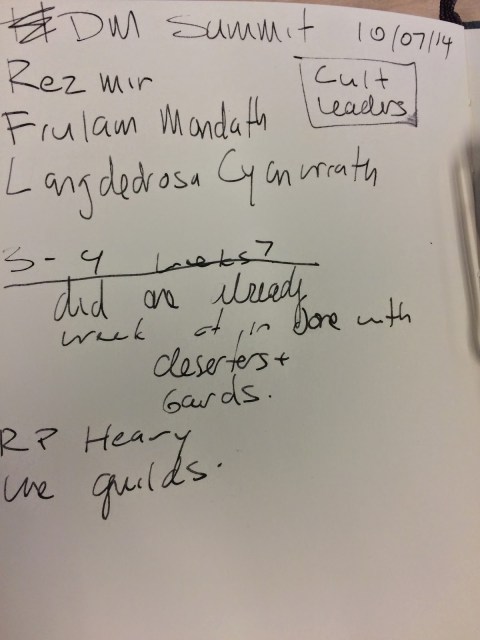 DM Summit 10/07/14
Cult
Leaders
Rezmir
Frulam Mondath
Langdedrosa Cyanwrath
3-4 weeks?
did one already
week at in Done with
deserters +
Gards.
RP Heavy
Use guilds.